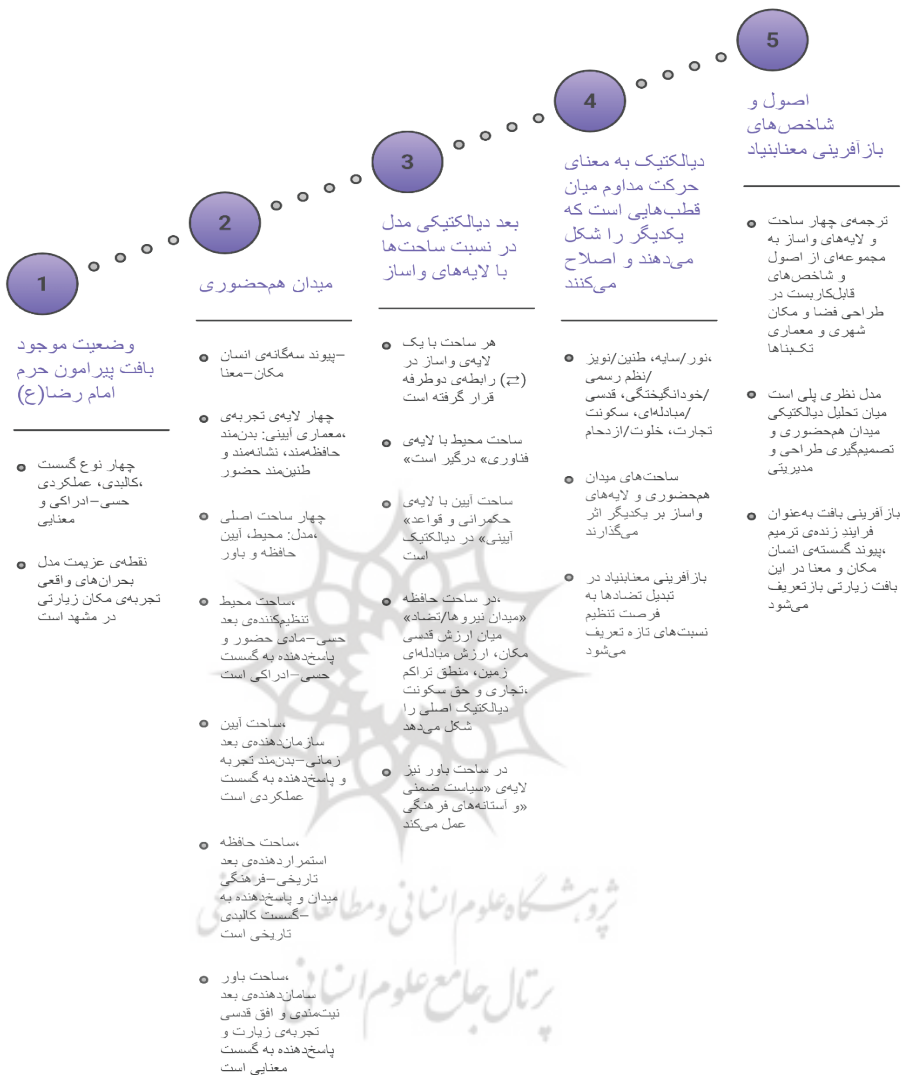 1
وضعیت موجود
بافت پیرامون حرم
امام رضا(ع)
چهار نوع گسست
کالبدی، عملکردی،
حسی–ادراکی و
معنایی
نقطه‌ی عزیمت مدل
بحران‌های واقعی
تجربه‌ی مکان زیارتی
در مشهد است
2
میدان هم‌حضوری
پیوند سه‌گانه‌ی انسان–
مکان–معنا
چهار لایه‌ی تجربه‌ی
معماری آیینی: بدن‌مند،
حافظه‌مند، نشانه‌مند و
طنین‌مند حضور
چهار ساحت اصلی
مدل: محیط، آیین،
حافظه و باور
ساحت محیط،
تنظیم‌کننده‌ی بعد
حسی–مادی حضور و
پاسخ‌دهنده به گسست
حسی–ادراکی است
ساحت آیین،
سازمان‌دهنده‌ی بعد
زمانی–بدن‌مند تجربه
و پاسخ‌دهنده به گسست
عملکردی است
ساحت حافظه،
استمراردهنده‌ی بعد
تاریخی–فرهنگی
میدان و پاسخ‌دهنده به
گسست کالبدی–
تاریخی است
ساحت باور،
سامان‌دهنده‌ی بعد
نیت‌مندی و افق قدسی
تجربه‌ی زیارت و
پاسخ‌دهنده به گسست
معنایی است
3
بعد دیالکتیکی مدل
در نسبت ساحت‌ها
با لایه‌های واساز
هر ساحت با یک
لایه‌ی واساز در
رابطه‌ی دوطرفه (⇄)
قرار گرفته است
ساحت محیط با لایه‌ی
«فناوری» درگیر است
ساحت آیین با لایه‌ی
«حکمرانی و قواعد
آیینی» در دیالکتیک
است
در ساحت حافظه،
«میدان نیروها/تضاد»
میان ارزش قدسی
مکان، ارزش مبادله‌ای
زمین، منطق تراکم
تجاری و حق سکونت،
دیالکتیک اصلی را
شکل می‌دهد
در ساحت باور نیز
لایه‌ی «سیاست ضمنی
و آستانه‌های فرهنگی»
عمل می‌کند
4
دیالکتیک به معنای
حرکت مداوم میان
قطب‌هایی است که
یکدیگر را شکل
می‌دهند و اصلاح
می‌کنند
نور/سایه، طنین/نویز،
نظم رسمی/
خودانگیختگی، قدسی/
مبادله‌ای، سکونت/
تجارت، خلوت/ازدحام
ساحت‌های میدان
هم‌حضوری و لایه‌های
واساز بر یکدیگر اثر
می‌گذارند
بازآفرینی معنابنیاد در
تبدیل تضادها به
فرصت تنظیم
نسبت‌های تازه تعریف
می‌شود
5
اصول و
شاخص‌های
بازآفرینی معنابنیاد
ترجمه‌ی چهار ساحت
و لایه‌های واساز به
مجموعه‌ای از اصول
و شاخص‌های
قابل‌کاربست در
طراحی فضا و مکان
شهری و معماری
تک‌بناها
مدل نظری پلی است
میان تحلیل دیالکتیکی
میدان هم‌حضوری و
تصمیم‌گیری طراحی و
مدیریتی
بازآفرینی بافت به‌عنوان
فرایندِ زنده‌ی ترمیم
پیوند گسسته‌ی انسان،
مکان و معنا در این
بافت زیارتی بازتعریف
می‌شود
پژوهشگاه علوم انسانی و مطالعات فرهنگی
پرتال جامع علوم انسانی